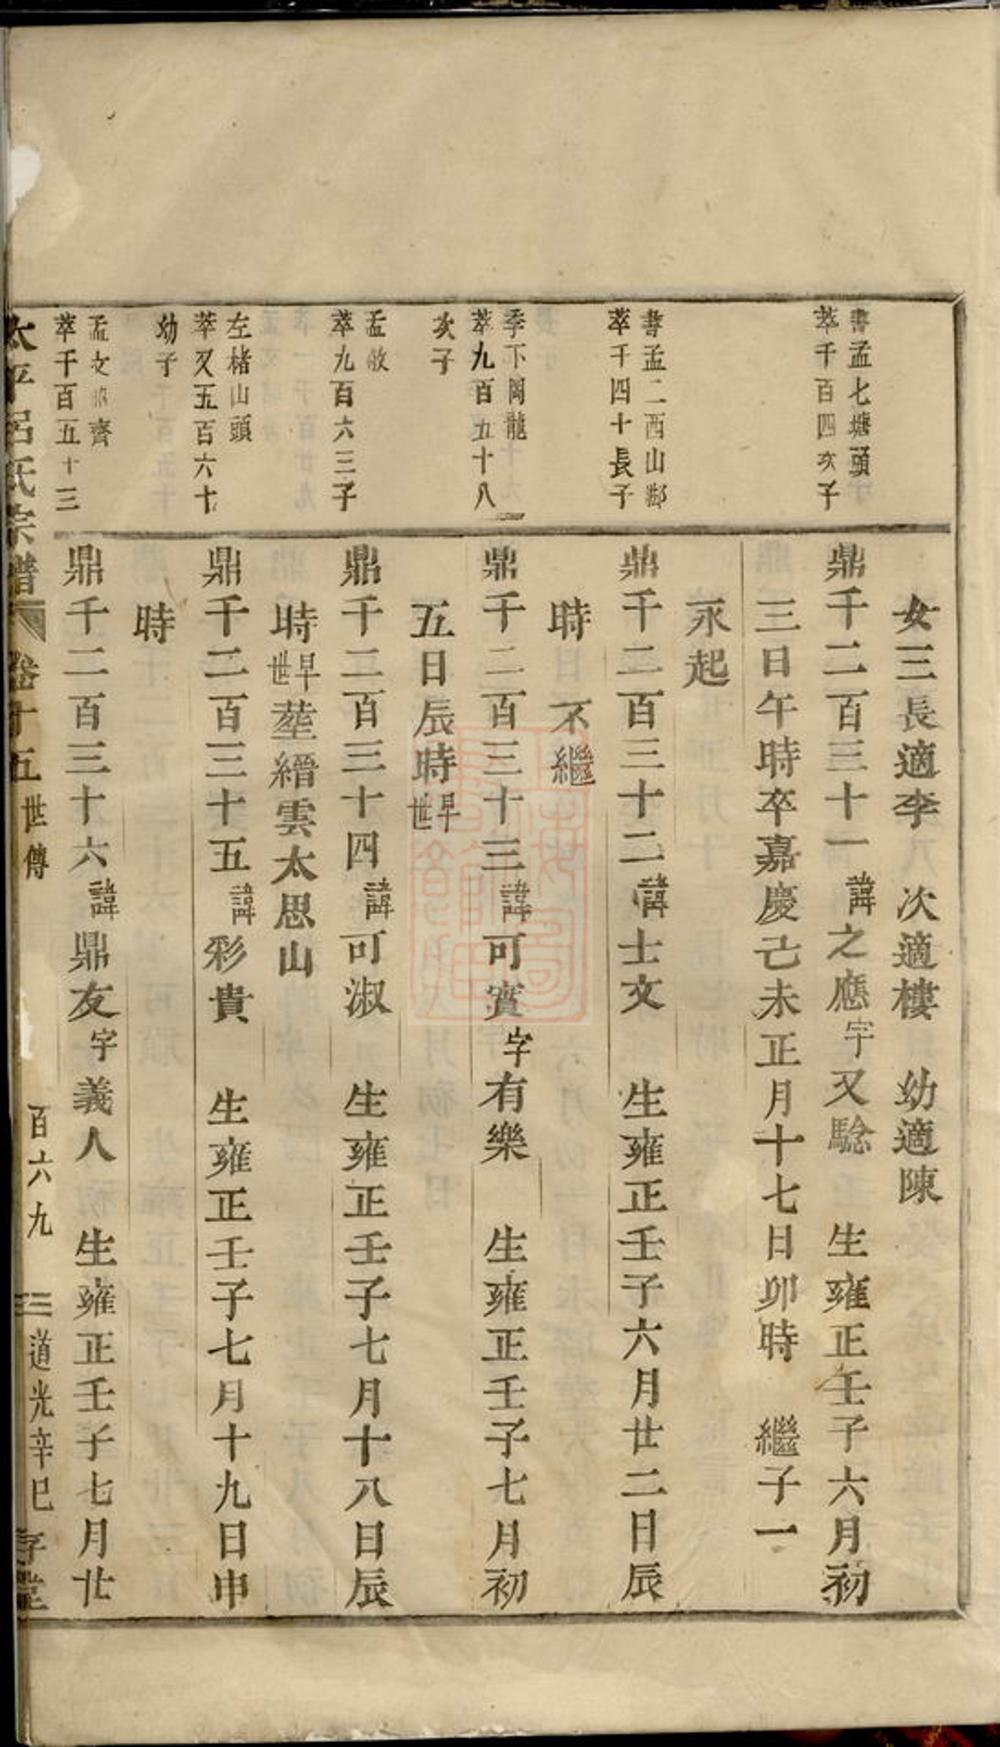 女三長適李　次適樓　幼適陳
書孟七塘頭
萃千百四次子
鼎千二百三十一諱之應字又騐　生雍正壬子六月初
三日午時卒嘉慶己未正月十七日卯時　繼子一
永起
書孟二西山鄰
萃千四十長子
鼎千二百三十二諱士文　生雍正壬子六月廿二日辰
時　不繼
季下岡龍
萃九百五十八
次子
鼎千二百三十三諱可賓字有樂　生雍正壬子七月初
五日辰時早世
孟敬
萃九百六三子
鼎千二百三十四諱可淑　生雍正壬子七月十八日辰
時早世塟縉雲太思山
左楮山頭
萃又五百六十
幼子
鼎千二百三十五諱彩貴　生雍正壬子七月十九日申
時
孟文齊
萃千百五十三
鼎千二百三十六諱鼎友字義人　生雍正壬子七月廿
太平呂氏宗譜　卷十五　世傳　百六九　道光辛巳